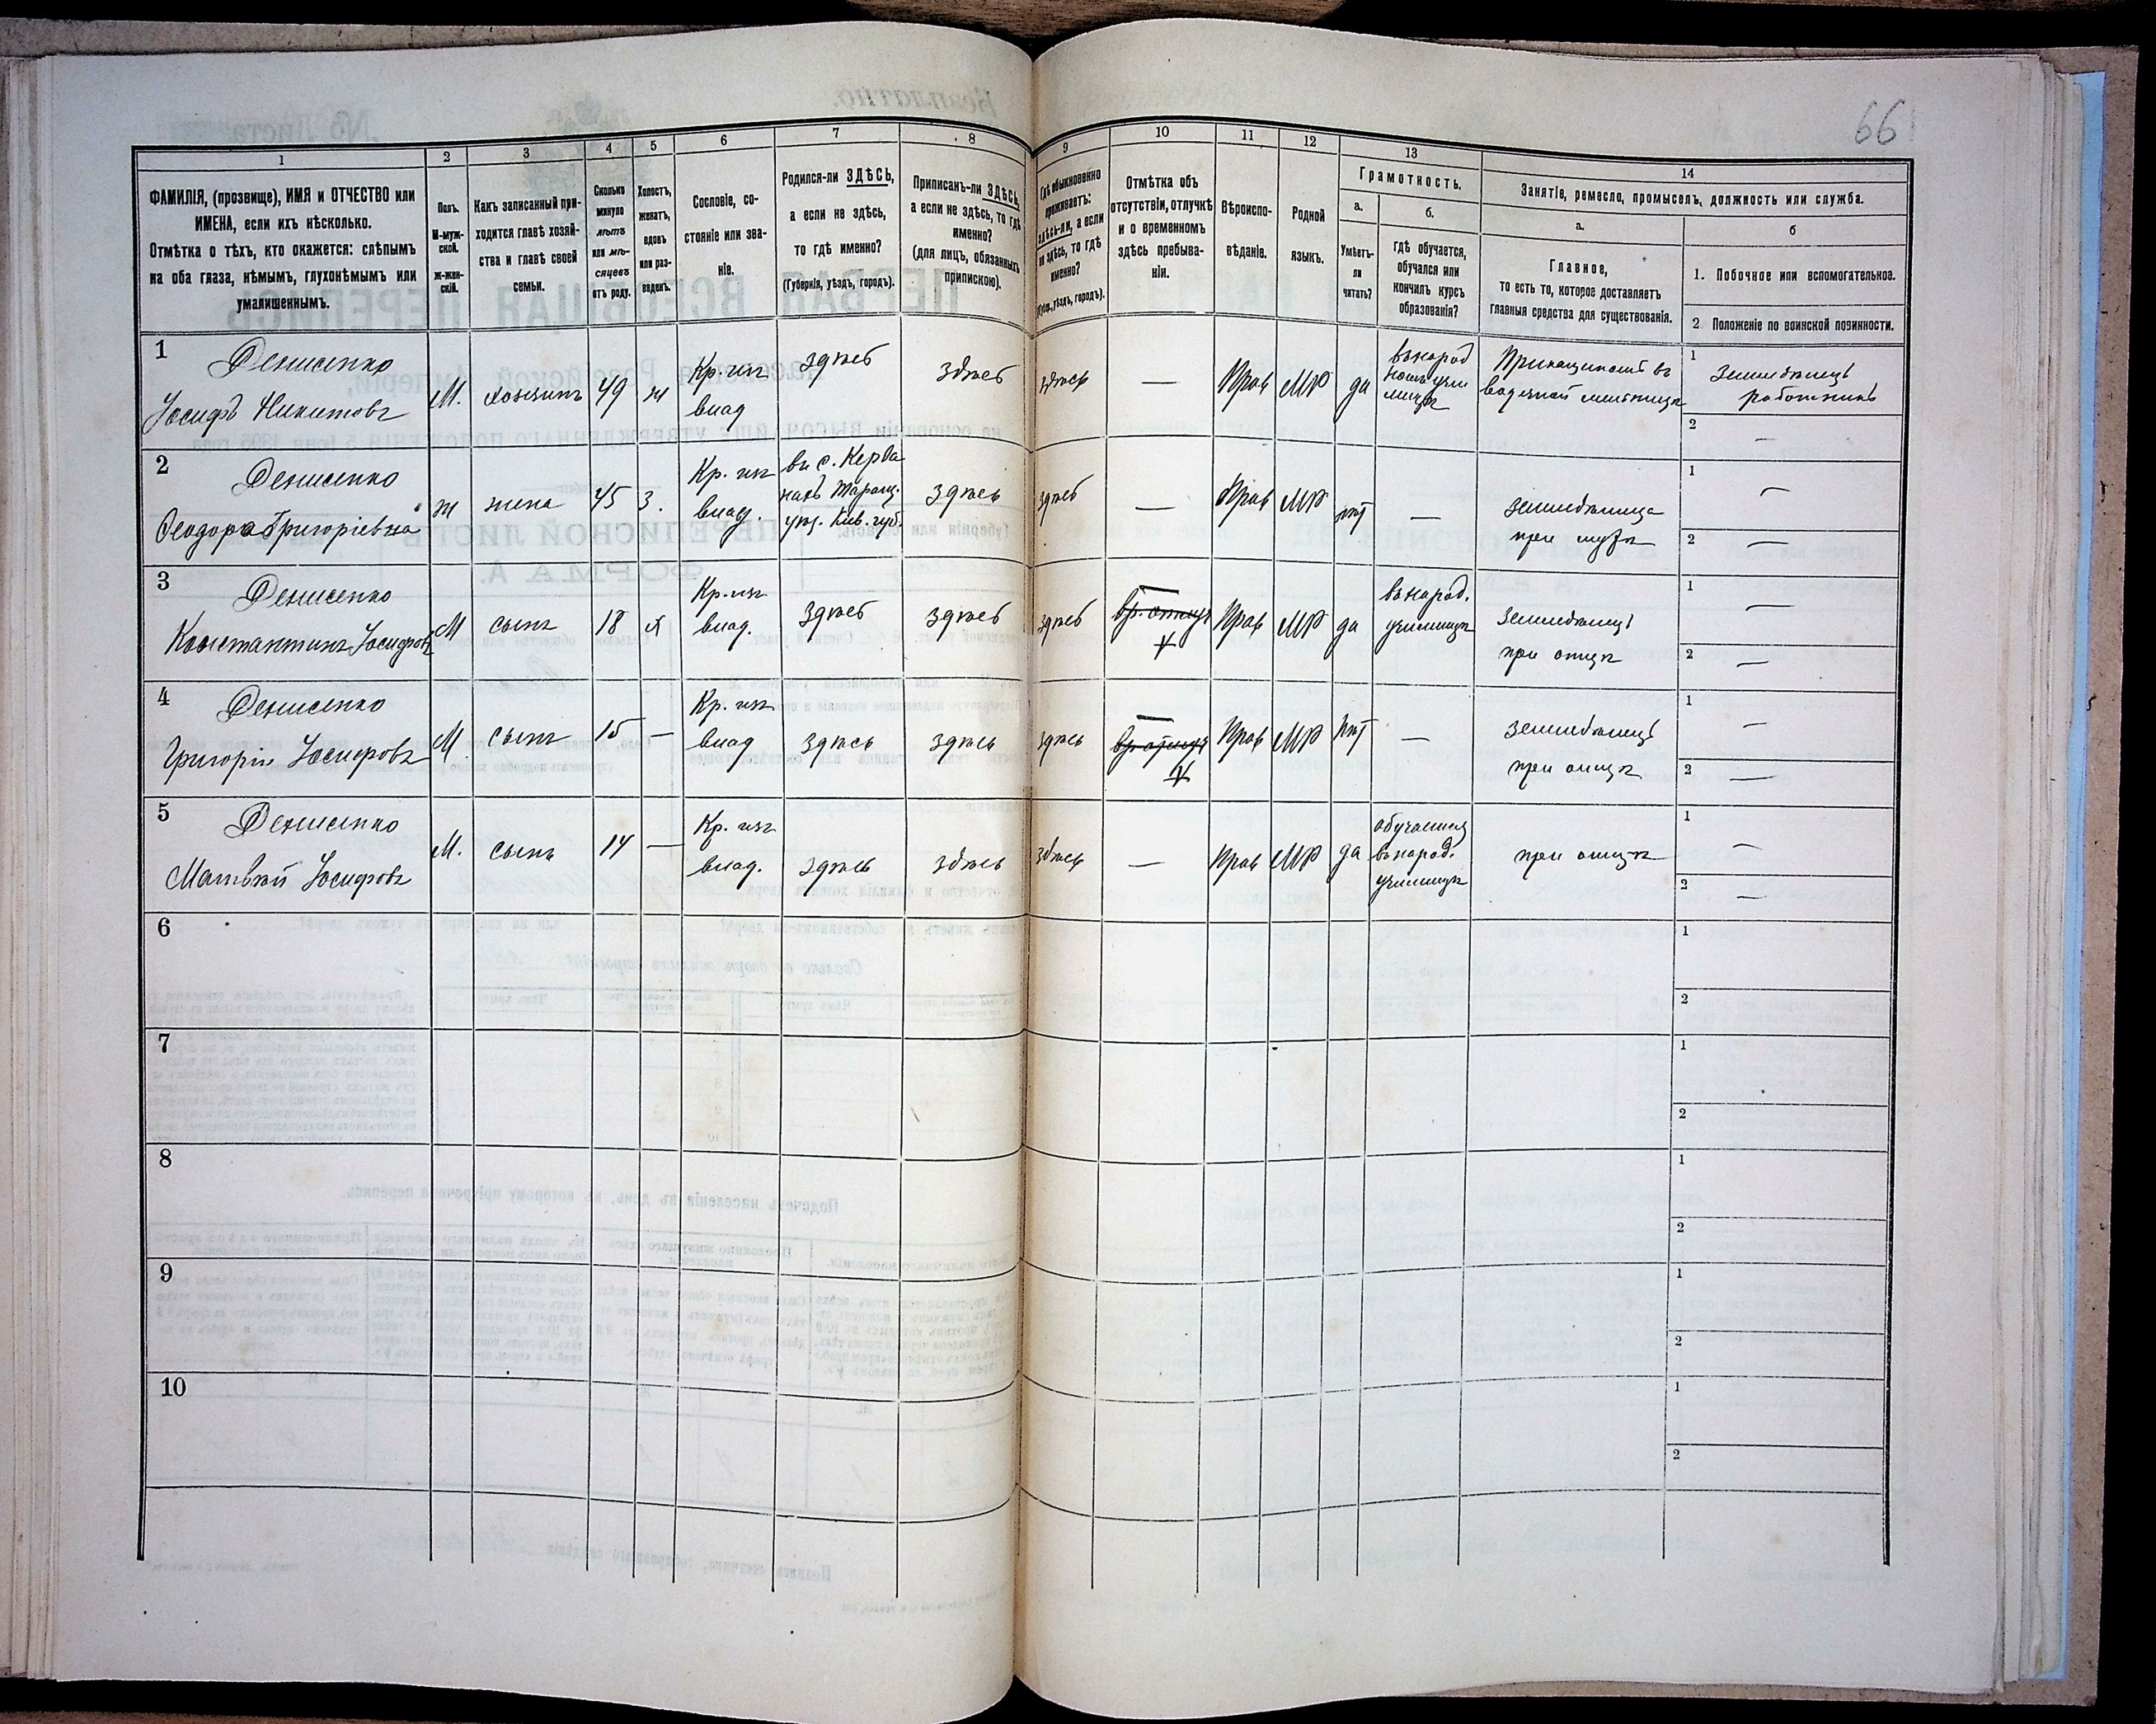 66
1
2
3
4
5
6
7
8
9
10
11
12
13
14
ФАМИЛІЯ, (прозвище), ИМЯ и ОТЧЕСТВО или
ИМЕНА, если ихъ нѣсколько.
Отмѣтка о тѣхъ, кто окажется: слѣпымъ
на оба глаза, нѣмымъ, глухонѣмымъ или
умалишеннымъ.
Полъ.
М-муж-
ской.
Ж-жен-
скій.
Какъ записанный при-
ходится главѣ хозяй-
ства и главѣ своей
семьи.
Сколько
минуло
лѣтъ
или мѣ-
сяцевъ
отъ роду.
Холостъ,
женатъ,
вдовъ
или раз-
веденъ.
Сословіе, со-
стояніе или зва-
ніе.
Родился-ли ЗДѢСЬ,
а если не здѣсь,
то гдѣ именно?
(Губернія, уѣздъ, городъ).
Приписанъ-ли ЗДѢСЬ,
а если не здѣсь, то гдѣ
именно?
(для лицъ, обязанныхъ
припискою).
Гдѣ обыкновенно
проживаетъ:
здѣсь-ли, а если
не здѣсь, то гдѣ
именно?
уѣздъ, городъ).
Отмѣтка объ
отсутствіи, отлучкѣ
и о временномъ
здѣсь пребыва-
ніи.
Вѣроиспо-
вѣданіе.
Родной
языкъ.
Грамотность.
а.
Умѣетъ-
ли
читать?
б.
гдѣ обучается,
обучался или
кончилъ курсъ
образованія?
Занятіе, ремесло, промыселъ, должность или служба.
а.
Главное,
то есть то, которое доставляетъ
главныя средства для существованія.
б
1. Побочное или вспомогательное.
2 Положеніе по воинской повинности.
1
Денисенко
Іосифъ Никитовъ
М.
хозяинъ
49
ж
Кр. изъ
влад
здѣсь
здѣсь
здѣсь
—
Прав
МР
да
въ народ
номъ учи
лищѣ
Прикащикомъ въ
водяной мельницѣ
1
земледѣлецъ
работникъ
2
—
2
Денисенко
Ѳеодора Григоріевна
ж
жена
45
З.
Кр. изъ
влад.
въ с. Керда
нахъ Таращ.
уѣз. Кив. губ.
здѣсь
здѣсь
—
Прав
МР
нѣт
—
земледѣлица
при мужѣ
1
—
2
—
3
Денисенко
Константинъ Іосифовъ
М
сынъ
18
х
Кр. изъ
влад.
здѣсь
здѣсь
здѣсь
Прав
МР
да
въ народ.
училищѣ
земледѣлецъ
при отцѣ
1
—
2
—
4
Денисенко
Григорій Іосифовъ
М
сынъ
15
—
Кр. изъ
влад
здѣсь
здѣсь
здѣсь
Прав
МР
нѣт
—
земледѣлецъ
при отцѣ
1
—
2
—
5
Денисенко
Матвѣй Іосифовъ
М.
сынъ
14
—
Кр. изъ
влад.
здѣсь
здѣсь
здѣсь
—
Прав
МР
да
обучается
въ народ.
училищѣ
при отцѣ
1
—
2
—
6
1
2
7
1
2
8
1
2
9
1
2
10
1
2